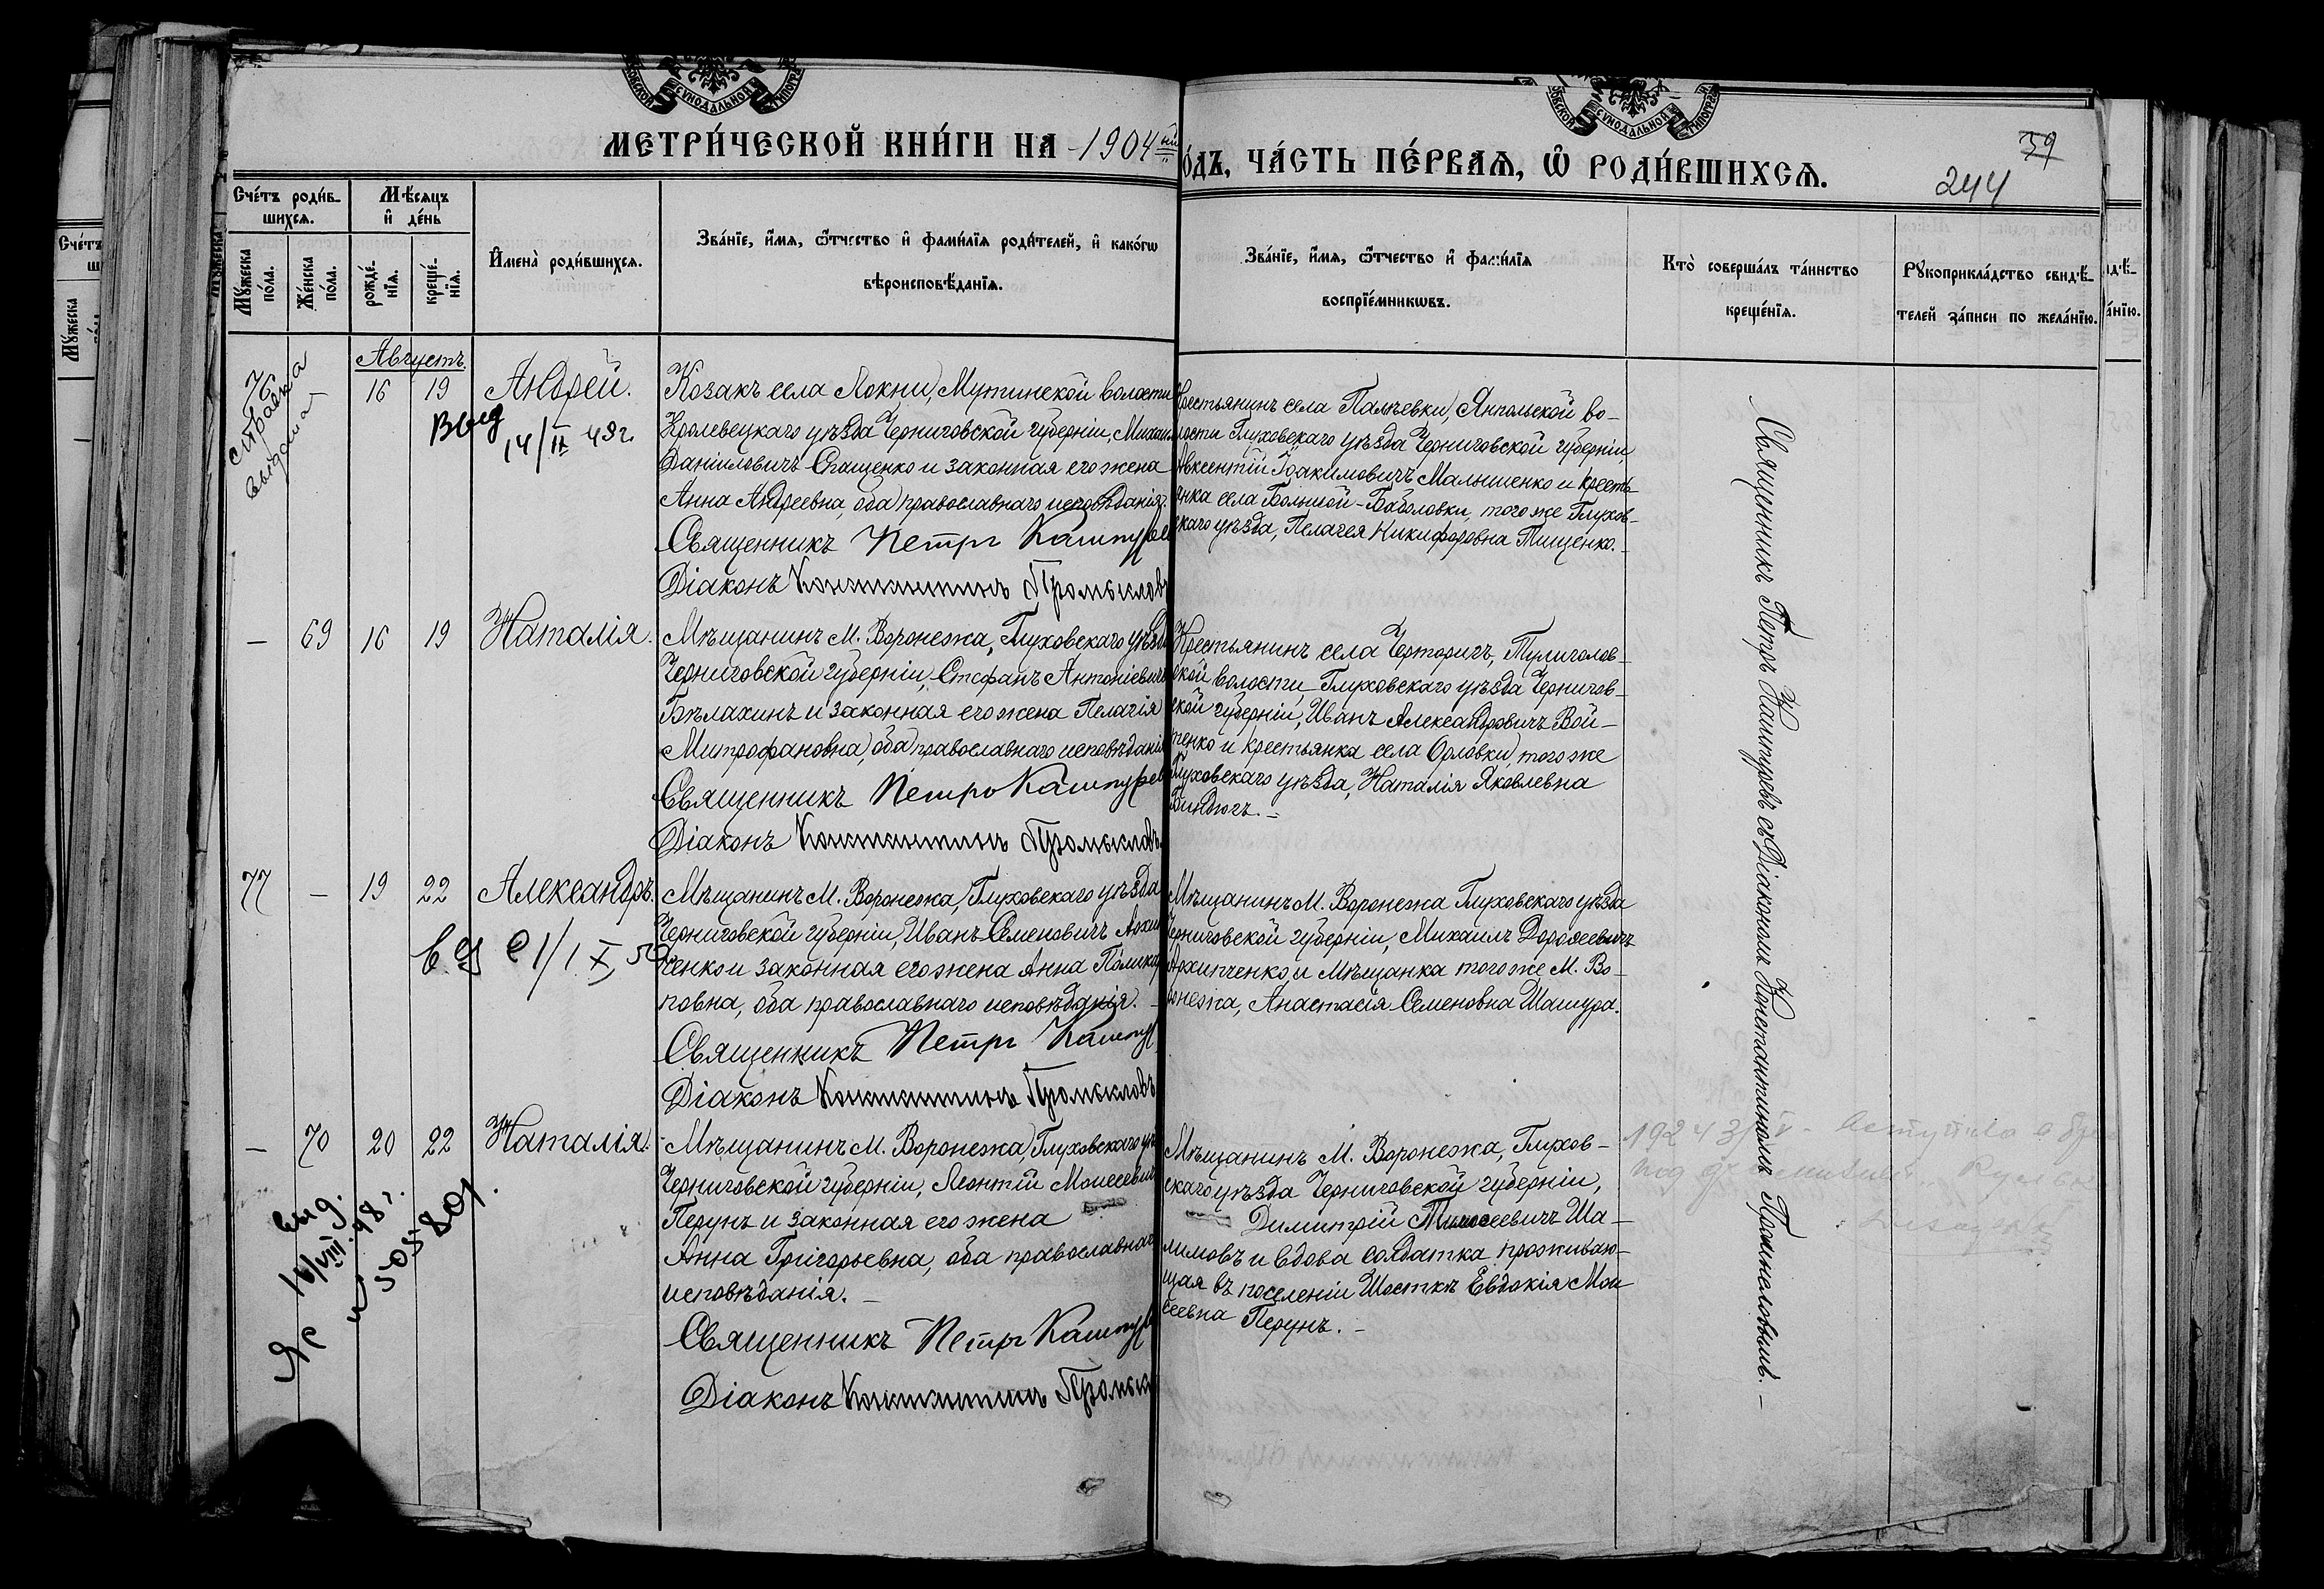 МЕТРИ́ЧЕСКОЙ КНИ́ГИ НА 1904 ый
О́ДЪ, ЧА́СТЬ ПЕ́РВАѦ, Ѡ РОДИ́ВШИХСѦ.
39
244
Сче́тъ роди́в-
шихсѧ.
Мꙋ́жеска
по́ла.
Же́нска
по́ла.
Мѣ́сѧцъ
и҆ де́нь
рожде́-
нїѧ.
креще́-
нїѧ.
И҆мена̀ роди́вшихсѧ.
Зва́нїе, и҆́мѧ, ѻ҆́тчество и҆ фами́лїѧ роди́телей, и҆ како́гѡ
вѣроисповѣ́данїѧ.
Зва́нїе, и҆́мѧ, ѻ҆́тчество и҆ фами́лїѧ
воспрїе́мникѡвъ.
Кто̀ соверша́лъ та́инство
креще́нїѧ.
Рꙋкоприкла́дство свидѣ́-
телей за́писи по жела́нїю.
Августъ
76
справка
выдана
16 19 Андрей.
Выд
14/II 49 г.
Козакъ села Локни, Мутинской волости
Кролевецкаго уѣзда Черниговской губерніи, Михаил
Даніиловичъ Спащенко и законная его жена
Анна Андреевна, оба православнаго исповѣданія.
Священникъ Петръ Кашпуре
Діаконъ Константинъ Промысловъ
Крестьянинъ села Пальчевки, Янпольской во-
лости Глуховскаго уѣзда Черниговской губерніи,
Авксентій Іоакимовичъ Малышенко и кресть-
янка села Большой-Боболовки, того же Глухов-
скаго уѣзда, Пелагея Никифоровна Тищенко.-
— 69 16 19 Наталія.
Мѣщанинъ М. Воронежа, Глуховскаго уѣзда
Черниговской губерніи, Стефанъ Антоніевичъ
Бѣлахинъ и законная его жена Пелагія
Митрофановна, оба православнаго исповѣданія
Священникъ Петръ Кашпурев
Діаконъ Константинъ Промысловъ
Крестьянинъ села Черторигъ, Тулиголов-
ской волости, Глуховскаго уѣзда Чернигов-
ской губерніи, Иванъ Александровичъ Вой-
тенко и крестьянка села Орловки, того же
Глуховскаго уѣзда, Наталія Яковлевна
Биндюгъ.-
77 — 19 22 Александръ.
Мѣщанинъ М. Воронежа, Глуховскаго уѣзда
Черниговской губерніи, Иванъ Семеновичъ Архип
ченко и законная его жена Анна Поликар
повна, оба православнаго исповѣданія.-
Священникъ Петръ Кашпу
Діаконъ Константинъ Промысловъ
Мѣщанинъ М. Воронежа Глуховскаго уѣзда
Черниговской губерніи, Михаилъ Дорофеевичъ
Архипченко и Мѣщанка того же М. Во-
ронежа, Анастасія Семеновна Шашура.
— 70 20 22 Наталія.
выд.
16/VIII 48 г.
505801.
Мѣщанинъ М. Воронежа, Глуховскаго уѣ
Черниговской губерніи, Леонтій Моисеевичъ
Перунъ и законная его жена
Анна Григорьевна, оба православнаг
исповѣданія.-
Священникъ Петръ Кашпур
Діаконъ Константинъ Промысл
Мѣщанинъ М. Воронежа, Глухов-
скаго уѣзда Черниговской губерніи,
Димитрій Ша-
лимовъ и вдова солдатка проживаю-
щая въ поселеніи Шосткѣ Евдокія Мои
сеевна Перунъ.-
Священникъ Петръ Кашпуревъ съ Діакономъ Константиномъ Промысловымъ.-